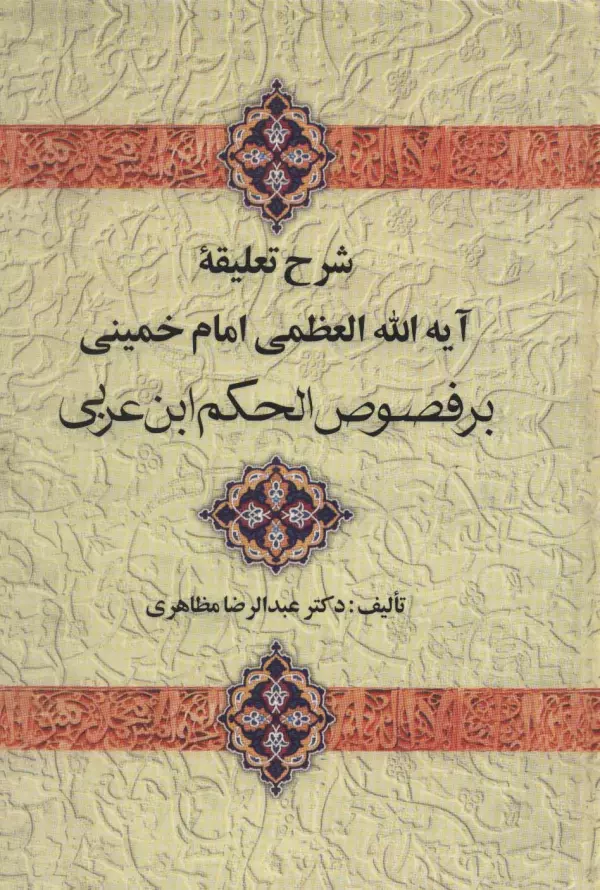 شرح تعلیقهٔ
آیه الله العظمی امام خمینی
بر فصوص الحکم ابن عربی
تألیف: دکتر عبدالرضا مظاهری